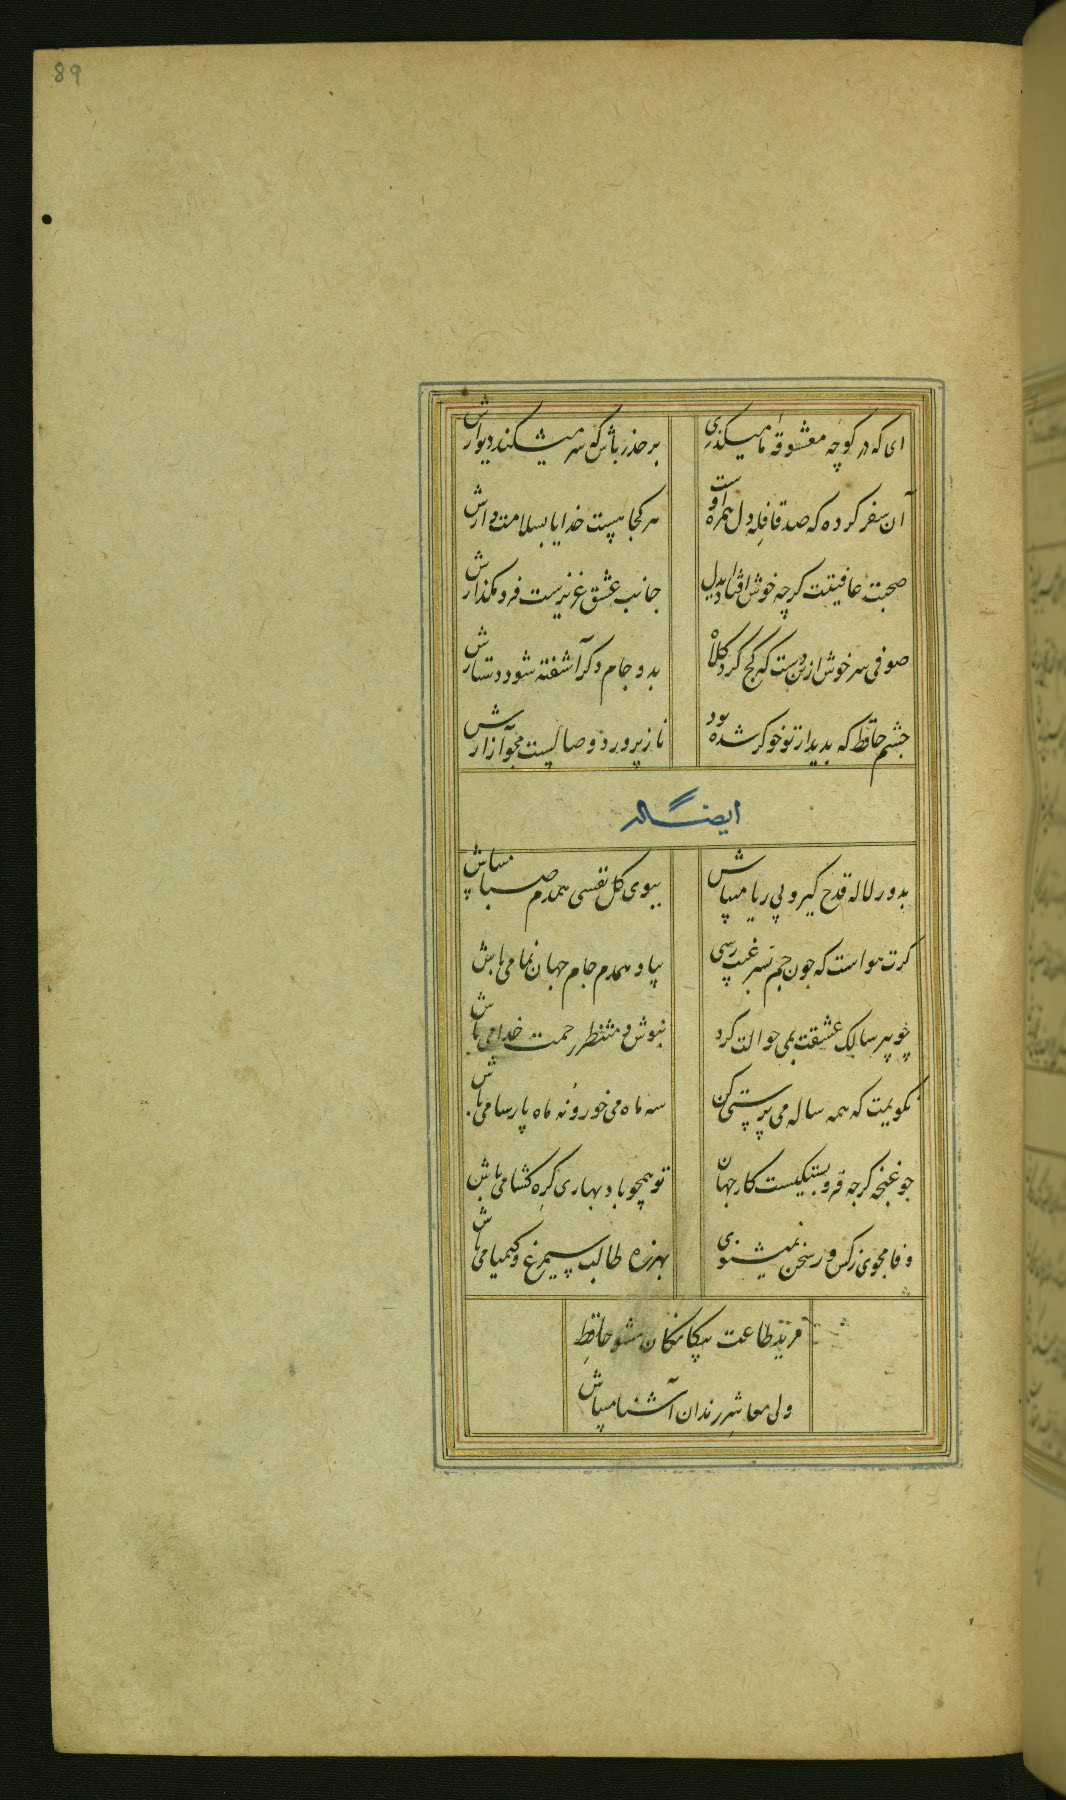 89
ای که در کوچه معشوقهٔ ما میکذری بر حذر باش که سر میشکند دیوارش
آن سفر کرده که صد قافله دل همره اوست هر کجا هست خدایا بسلامت دارش
صحبت عافیتت کرچه خوش افتاد ای دل جانب عشق عزیزست فرو مکذارش
صوفی سرخوش ازین دست که کج کرد کلاه بدو جام دکر آشفته شود دستارش
چشم حافظ که بدیدار تو خوکر شده بود نازپرورد وصالست مجو آزارش
ایضاً له
بدور لاله قدح کیر و بی ریا میباش ببوی کل نفسی همدم صبا میباش
کرت هواست که جون جم بسر غیب رسی بیا و همدم جام جهان نما می باش
چو پیر سالک عشقت بمی حوالت کرد بنوش و منتظر رحمت خدا می باش
نکویمت که همه ساله می پرستی کن سه ماه می خور و نه ماه پارسا می باش
جو غنجه کرجه فروبستکیست کار جهان تو همچو باد بهاری کره کشا می باش
وفا مجوی ز کس ور سخن نمیشنوی بهرزه طالب سیمرغ و کیمیا می باش
مرید طاعت بیکانکان مشو حافظ
ولی معاشر رندان آشنا میباش